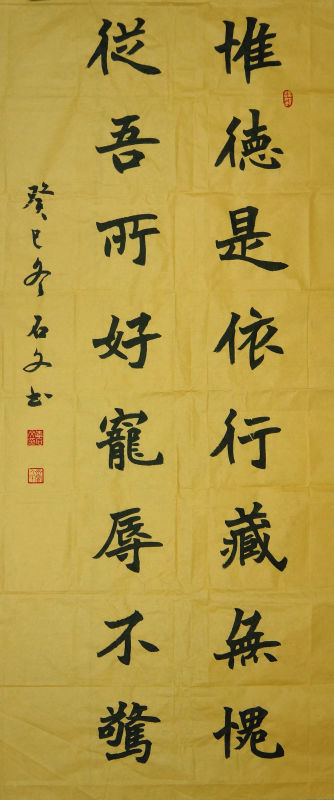 惟德是依行藏無愧
從吾所好寵辱不驚
癸巳冬石文书